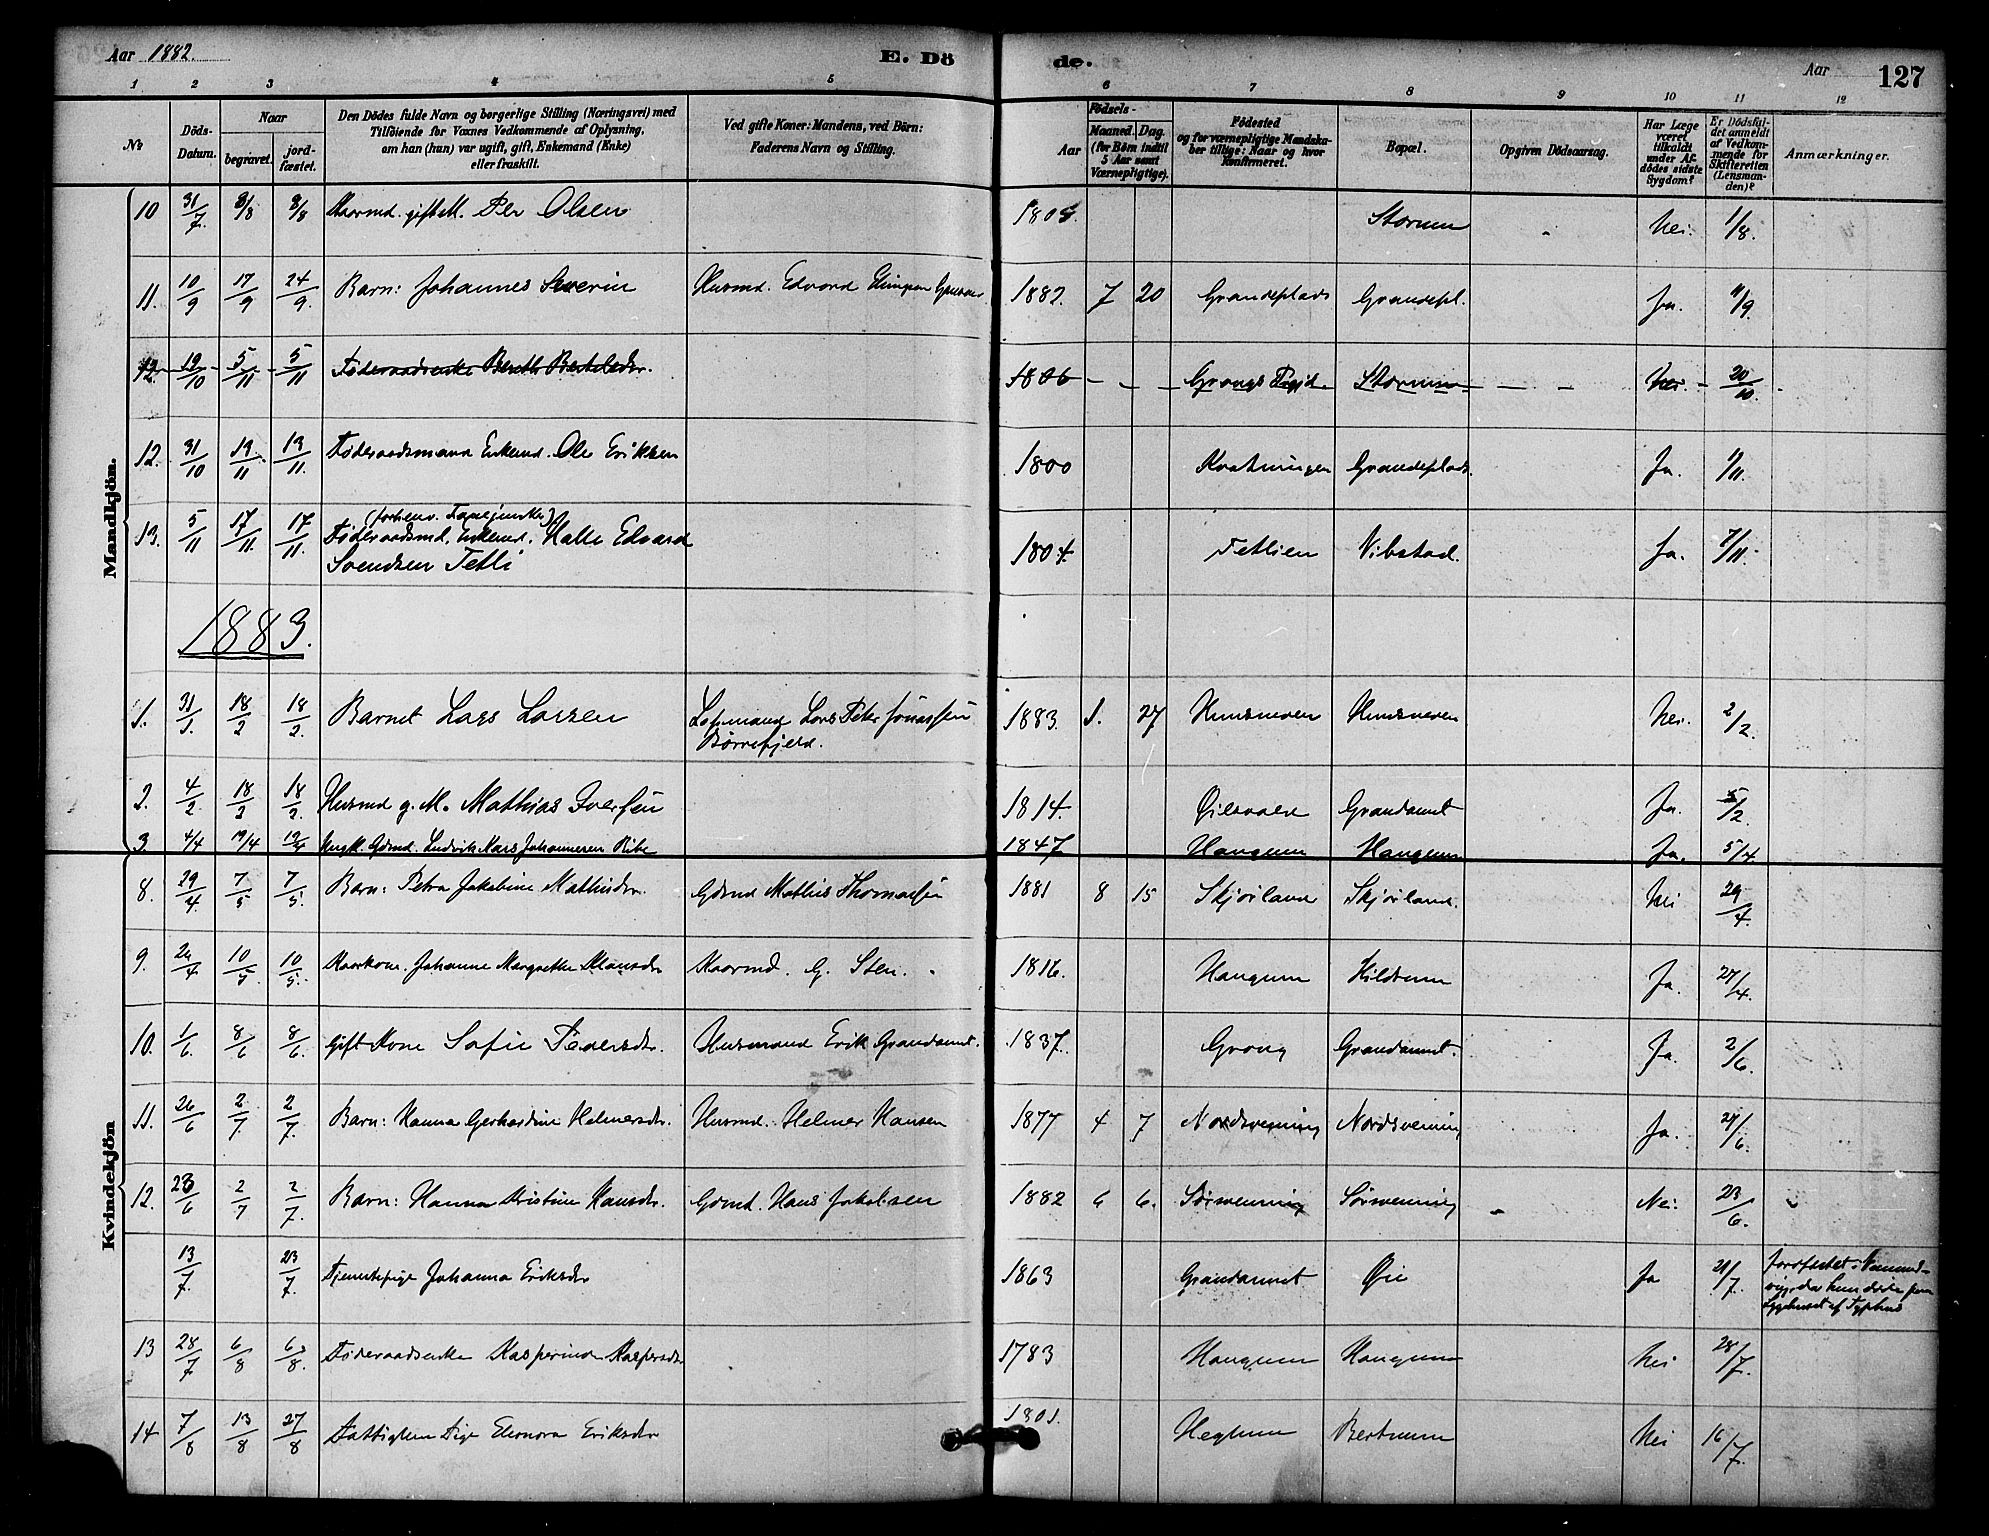 Aar 1882. E. Dö de. Aar 127
1 2 3 4 5 6 7 8 9 10 11 12
No
Döds-Datum.
Naar begravet. jordfæstet.
Den Dödes fulde Navn og borgerlige Stilling (Næringsvei) med
Tilföiende for Voxnes Vedkommende af Oplysning,
om han (hun) var ugift, gift, Enkemand (Enke)
eller fraskilt.
Ved gifte Koner: Mandens, ved Börn:
Faderens Navn og Stilling.
Födsels-
Aar Maaned. Dag.
(for Börn indtil
5 Aar samt
Værnepligtige).
Födested
og for værnepligtige Mandskaber tillige: Naar og hvor
Konfirmeret.
Bopæl.
Opgiven Dödsaarsag.
Har Læge været tilkaldt under Afdödes sidste Sygdom?
Er Dödsfaldet anmeldt af Vedkommende for Skifteretten (Lensmanden)?
Anmærkninger.
Mandkjön.
10 31/7. 8/8 8/8 Kaarmd. gift M. Per Olsen 1805. Storum Nei. 1/8.
11. 10/9 17/9 24/9. Barn: Johannes Severin Husmd. Edvard 1882. 7 20 Grandeplads Grandepl. Ja. 11/9.
12. 19/10 5/11 5/11 Föderaadsenke Bereth Bertelsdr. 1806 Grongs Storum Nei. 20/10.
12. 31/10 19/11 19/11. Föderaadsmand Enkemd. Ole Eriksen 1800 Grandeplads. Ja. 1/11.
13. 5/11 17/11. 17/11. Föderaadsmd. Enkemd. Halle Edvard
Svendsen Tetli 1804. Tetlien Vibstad. Ja. 7/11.
1883.
1. 31/1. 18/2 18/2. Barnet Lars Larsen Lars Peter Jonassen
1883. 1. 27 Nei. 2/2.
2. 4/2. 18/2 18/2. Husmd g. M. Mathias Iversen 1814. Grandaunet Ja. 5/2
3. 4/4 19/4 19/4 Ungk. Gdmd. Ludvik Johannesen 1847 Haugum Haugum Ja. 5/4
Kvindekjön
8. 29/4. 7/5 7/5. Barn: Petra Jakobine Mathisdr. Gdmd Mathis Thomassen 1881 8 15 Skjörland Skjörland. Nei 29/4.
9. 24/4 10/5. 10/5. Kaarkone. Johanne Margrethe Klausdr Kaarmd. G. Sten. 1816. Haugum Hildrem Ja. 27/4.
10. 1/6. 8/6 8/6. Gift Kone Sofie Pedersdr. Husmand Erik Grandaunet. 1837. Grong Grandaunet. Ja. 2/6.
11. 26/6 2/7. 2/7. Barn: Hanna Gerhardine Helmersdr. Husmd. Helmer Hansen 1877 4 7 Nordsvenning Nordsvenning Ja. 27/6.
12. 23/6 2/7 2/7. Barn: Hanna Kristine Hansdr. Gdmd. Hans Jakobsen 1882 6 6. Sörsvenning Sörsvenning Nei. 23/6.
13/7. 23/7. Tjenestepige Johanna Eriksdr 1863 Grandaunet Öie Ja 21/7. Jordfæstet i
hun döde paa
Sygehuset af Typhus
13 28/7 6/8 6/8. Föderaadsenke Kasperine Kaspersdr 1783 Haugum Haugum Nei 28/7.
14 7/8 13/8 27/8 Fattiglem Pige Elenora Eriksdr 1801. Heglum Bertnum Nei 16/7.